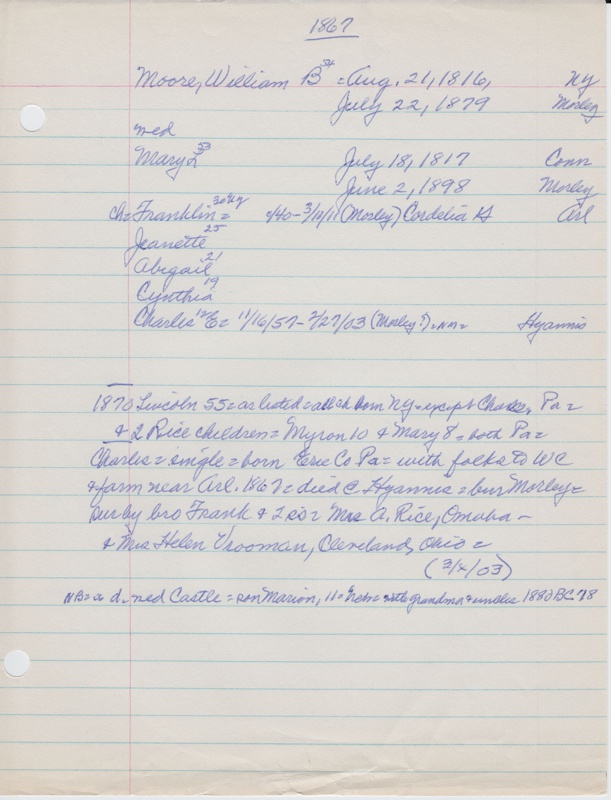 1867
Moore, William B 54 = Aug. 21, 1816, NY
July 22, 1879 Morley
med
Mary L 53 July 18, 1817 Conn
June 2, 1898 Morley
ch = Franklin = 30 NY /40 - 3/11/11 (Morley) Cordelia Arl
Jeanette 25
Abigail 21
Cynthia 19
Charles 12 E = 11/16/57 - 2/27/03 (Morley?) = nm = Hyannis
1870 Lincoln 55 = as listed = all ch born NY = except Charles, Pa =
& 2 Rice children = Myron 10 & Mary 8 = both Pa =
Charles = single = born Erie Co Pa = with folks to WC
& farm near Arl. 1867 = died @ Hyannis = bur Morley =
sur by bro Frank & 2 sis = Mrs A. Rice, Omaha -
& Mrs Helen Vrooman, Cleveland, Ohio =
(3/4/03)
NB = a d. med Castle = son Marion, 11 = Nebr = with grandma & uncles 1880 BC 78